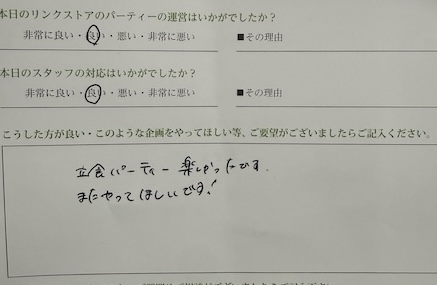 本日のリンクストアのパーティーの運営はいかがでしたか?
非常に良い・良い・悪い・非常に悪い ■その理由
本日のスタッフの対応はいかがでしたか?
非常に良い・良い・悪い・非常に悪い ■その理由
こうした方が良い・このような企画をやってほしい等、ご要望がございましたらご記入ください。
立食パーティー楽しかったです。
またやってほしいです!